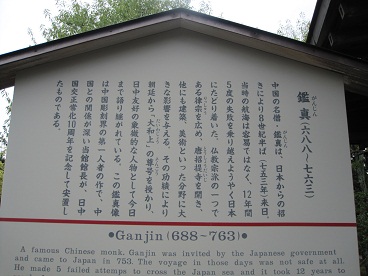 鑑真(六八八〜七六三)
がんじん
中国の名僧・鑑真は、日本からの招
きにより8世紀半ば(七五三年)来日。
当時の航海は容易ではなく、12年間
5度の失敗を乗り越えようやく日本
にたどり着いた。仏教宗派の一つで
ある律宗を広め、唐招提寺を開き、
他にも建築、美術といった分野に大
きな影響を与える。その功績により
朝廷から「大和上」の尊号を授かり、
日中友好の象徴的な人物として今日
まで語り継がれている。この鑑真像
は中国彫刻界の第一人者の作で、中
国との関係が深い当館館長が、日中
国交正常化10周年を記念して安置し
たものである。
•Ganjin(688~763)•
A famous Chinese monk, Ganjin was invited by the Japanese government
and came to Japan in 753. The voyage in those days was not safe at all.
He made 5 failed attempts to cross the Japan sea and it took 12 years to